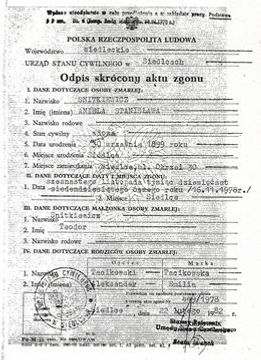 Wydano nieodpłatnie w celu przedłożenia w zakładzie pracy. Podstawa
POLSKA RZECZPOSPOLITA LUDOWA
Województwo siedleckie
URZĄD STANU CYWILNEGO w Siedlcach
Odpis skrócony aktu zgonu
I. DANE DOTYCZĄCE OSOBY ZMARŁEJ:
1. Nazwisko SNITKIEWICZ
2. Imię (imiona) ANIELA STANISŁAWA
3. Nazwisko rodowe
4. Stan cywilny
5. Data urodzenia 30 września 1899 roku
6. Miejsce urodzenia Siedlce
7. Miejsce zamieszkania Siedlce, 30
II. DANE DOTYCZĄCE DATY I MIEJSCA ZGONU:
szesnastego listopada tysiąc dziewięćset
1. Data siedemdziesiątego ósmego roku /16.11.1978r./
2. Miejsce Siedlce
III. DANE DOTYCZĄCE MAŁŻONKA OSOBY ZMARŁEJ:
1. Nazwisko Snitkiewicz
2. Imię (imiona) Teodor
3. Nazwisko rodowe
IV. DANE DOTYCZĄCE RODZICÓW OSOBY ZMARŁEJ:
Ojciec Matka
1. Nazwisko Tacikowski Tacikowska
2. Imię (imiona) Aleksander Emilia
/1978
Siedlce 22 lutego 82